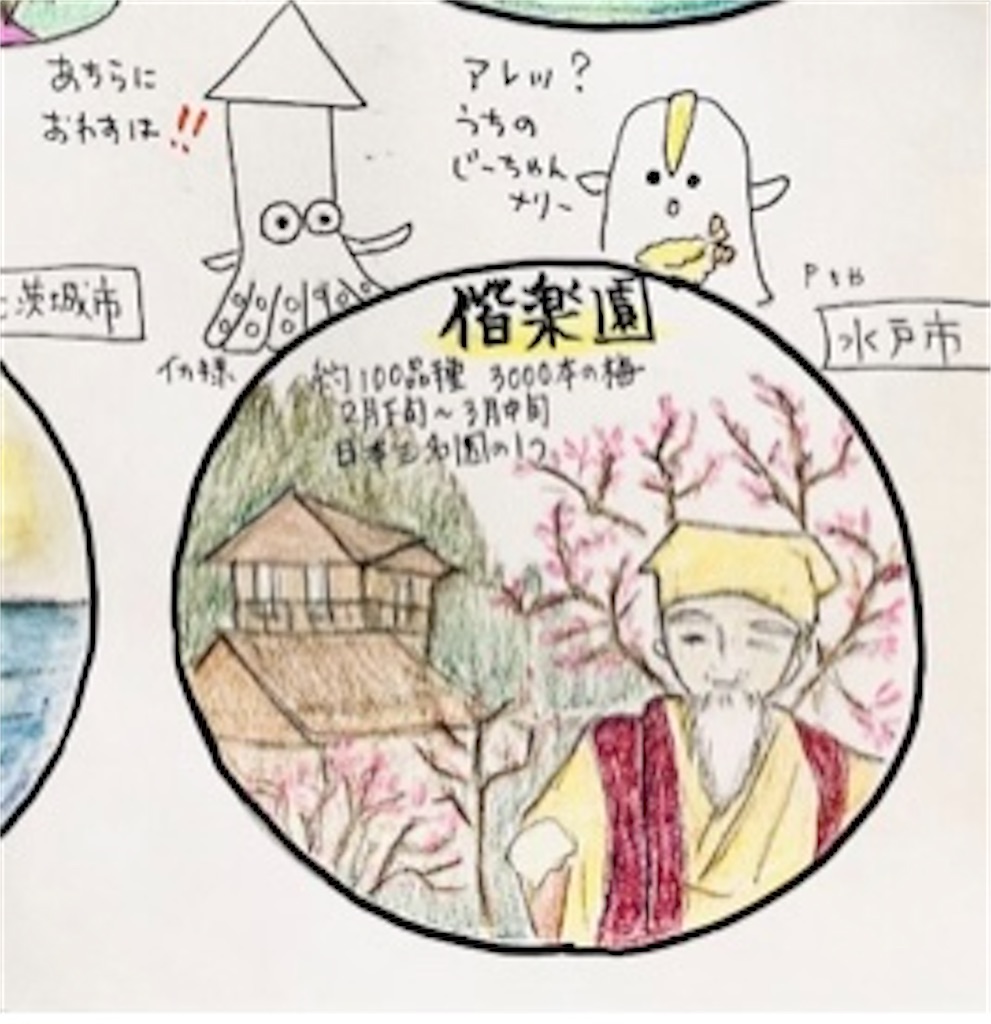 あちらに
おわすは!!
アレッ?
うちの
じーちゃん
茨城市
イカ様
水戸市
偕楽園
約100品種 3000本の梅
2月下旬~3月中旬
日本三名園の1つ